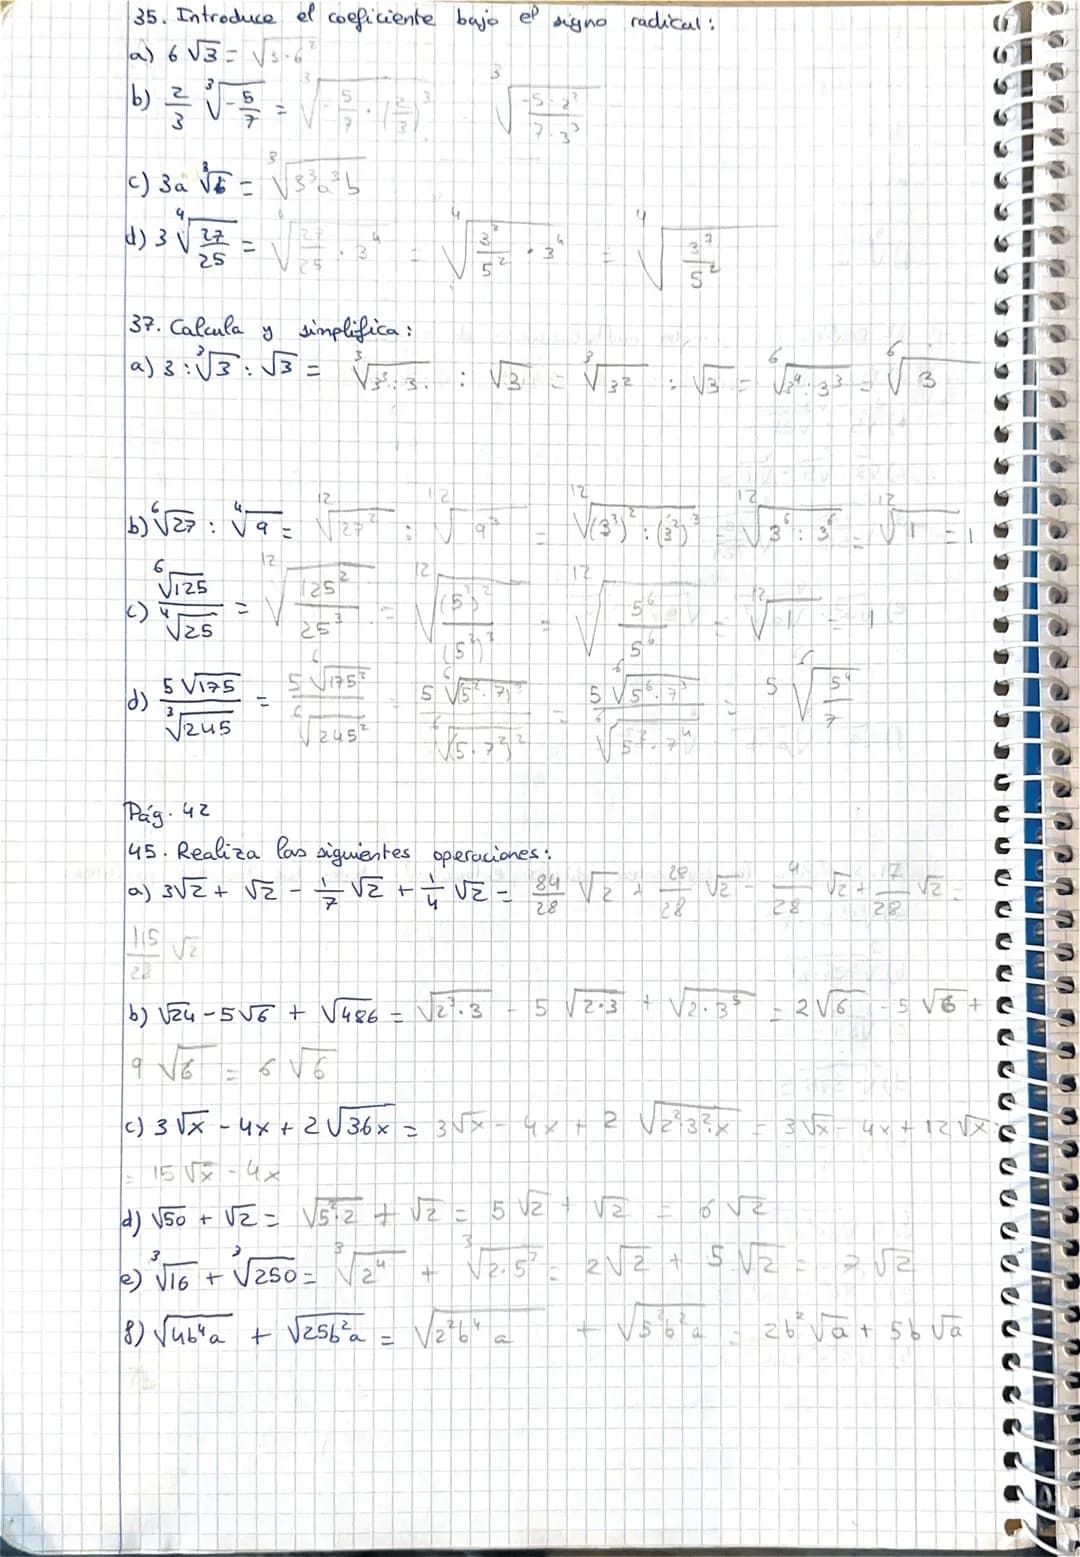 35. Introduce el coeficiente bajo el signo radical:
a) 6√3 = √(3·6²)
b) 2/3 ∛(-5/7) = ∛(-5/7 · (2/3)³) ∛((-5·2³)/(7·3³))
c) 3a ∛b = ∛(3³a³b)
d) 3 ∜(27/25) = ∜(27/25 · 3⁴) = ∜(3³/5² · 3⁴) = ∜(3⁷/5²)
37. Calcula y simplifica:
a) 3 : ∛3 : √3 = ∛(3³:3) : √3 = ∛(3²) : √3 = ⁶√(3⁴:3³) = ⁶√3
b) ⁶√27 : ∜9 = ¹²√(27²) : ¹²√(9³) = ¹²√((3³)² : (3²)³) = ¹²√(3⁶ : 3⁶) = ¹²√1 = 1
c) ⁶√125 / ∜25 = ¹²√(125²/25³) = ¹²√((5³)²/(5²)³) = ¹²√(5⁶/5⁶) = ¹²√1 = 1
d) 5√175 / ∛245 = 5 ⁶√(175³) / ⁶√(245²) = 5 ⁶√((5²·7)³) / ⁶√((5·7²)²) = 5 ⁶√(5⁶·7³) / ⁶√(5²·7⁴) = 5 ⁶√(5⁴/7)
Pág. 42
45. Realiza las siguientes operaciones:
a) 3√2 + √2 - 1/7 √2 + 1/4 √2 = 84/28 √2 + 28/28 √2 - 4/28 √2 + /28 √2 =
115/28 √2
b) √24 - 5√6 + √486 = √(2³·3) - 5 √(2·3) + √(2·3⁵) = 2√6 - 5√6 +
9√6 = 6√6
c) 3√x - 4x + 2√(36x) = 3√x - 4x + 2 √(2²3²x) = 3√x - 4x + 12√x
= 15√x - 4x
d) √50 + √2 = √(5²·2) + √2 = 5√2 + √2 = 6√2
e) ∛16 + ∛250 = ∛(2⁴) + ∛(2·5³) = 2√2 + 5√2 = 7√2
f) √(4b⁴a) + √(25b²a) = √(2²b⁴a) + √(5²b²a) = 2b²√a + 5b√a